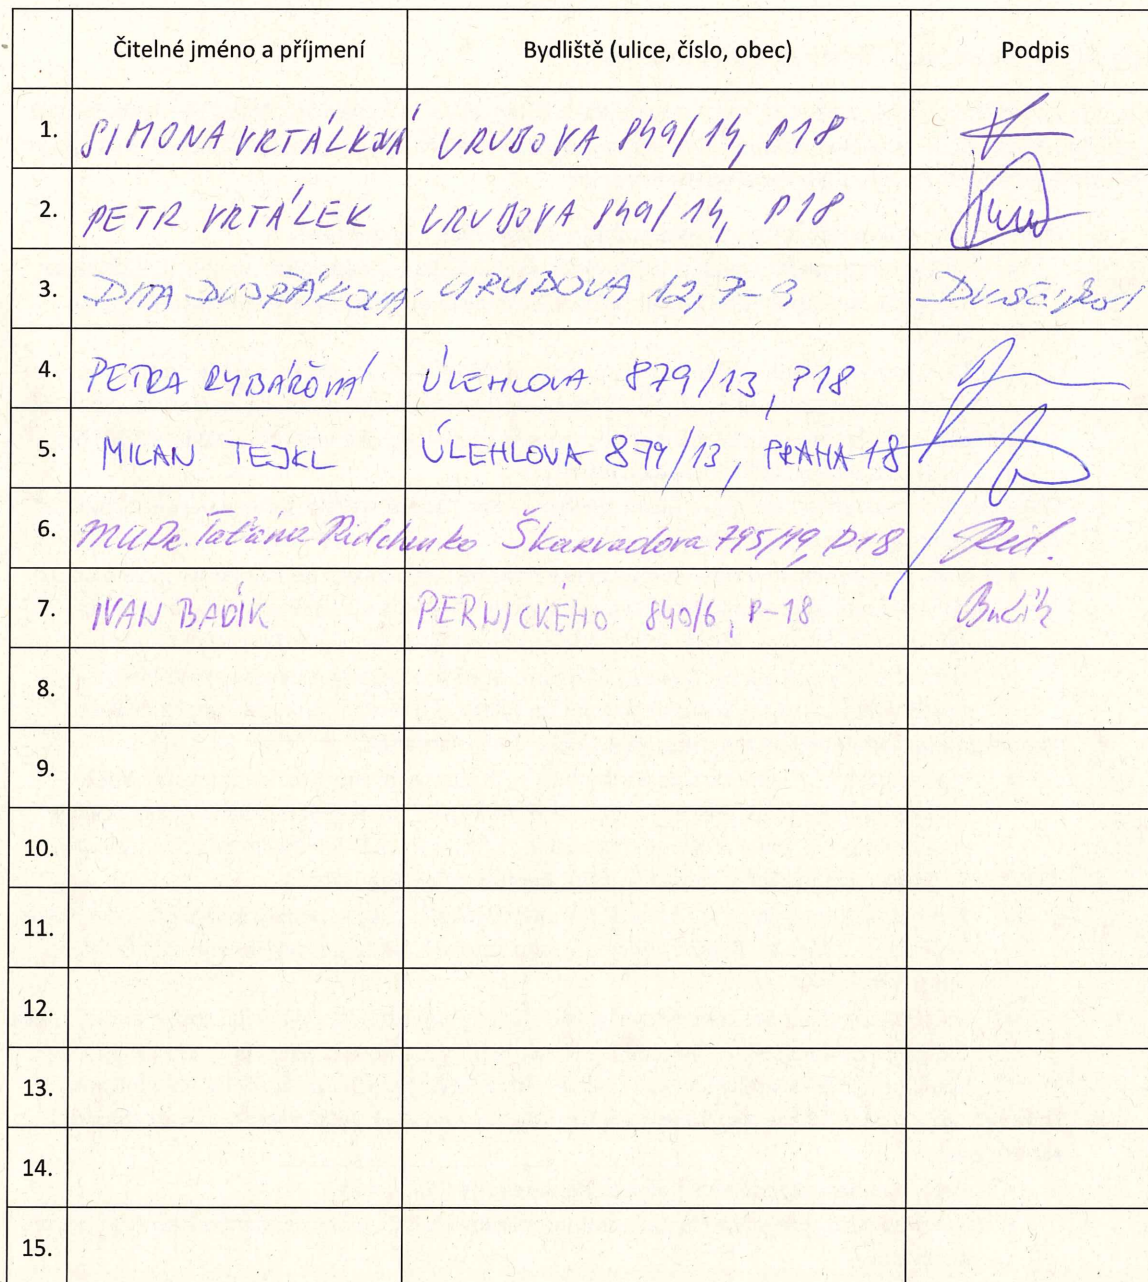 Čitelné jméno a příjmení Bydliště (ulice, číslo, obec) Podpis
1. SIMONA VRTÁLKOVÁ URUBOVA 849/14, P18
2. PETR VRTÁLEK URUBOVA 849/14, P18
3. DITA URUBOVA 12, P-9
4. PETRA RYBÁŘOVÁ ÚLEHLOVA 879/13, P18
5. MILAN TEJKL ÚLEHLOVA 879/13, PRAHA 18
6. MUDr. Taťana Ridchenko Škarvadova 795/19, P18 Rid.
7. IVAN BADÍK PERNICKÉHO 840/6, P-18 Badík
8.
9.
10.
11.
12.
13.
14.
15.